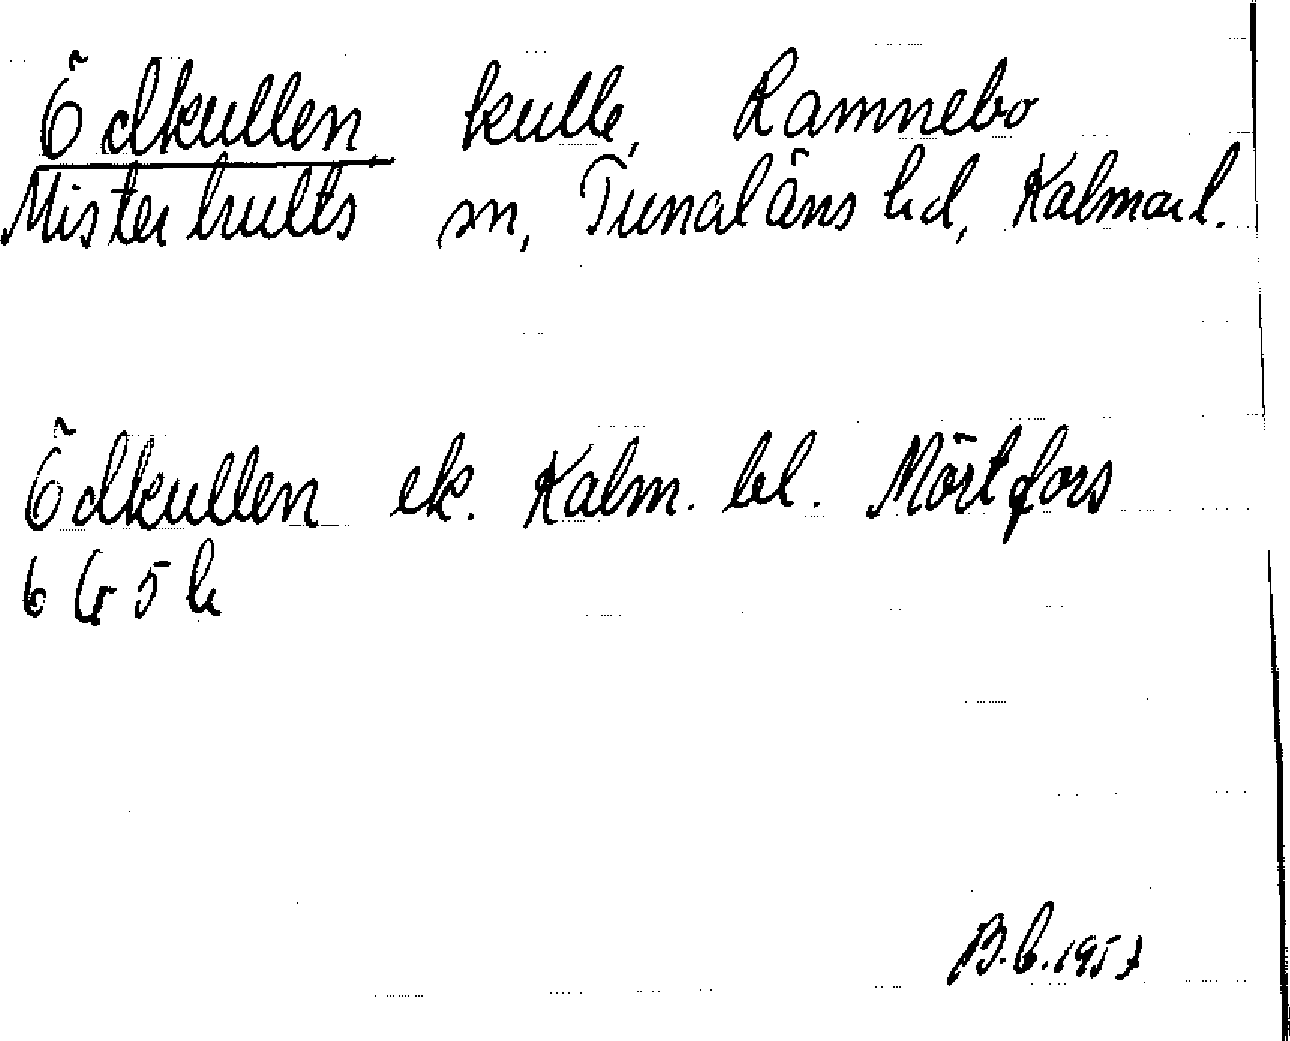 Ödkullen, kulle, Ramnebo
Misterhults sn, Tunaläns hd, Kalmar l.
Ödkullen ek. Kalm. bl. Mörtfors
6 G 5 h
B.b. 1957